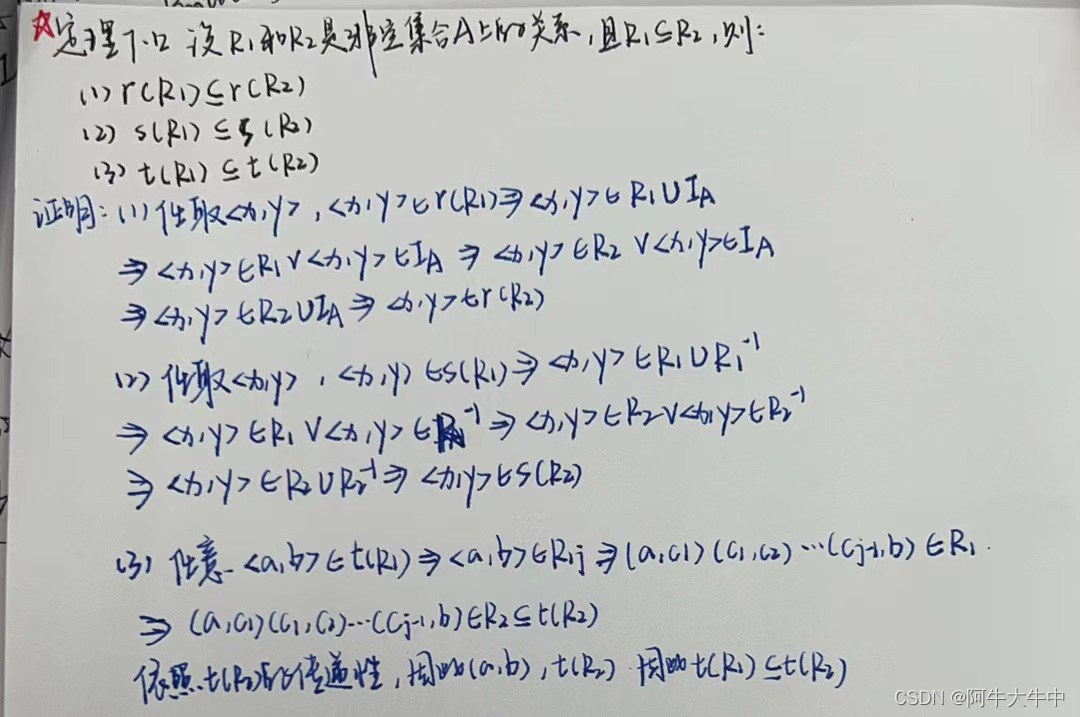 ☆定理7.12 设R₁和R₂是非空集合A上的关系,且R₁⊆R₂,则:
(1) r(R₁)⊆r(R₂)
(2) s(R₁)⊆s(R₂)
(3) t(R₁)⊆t(R₂)
证明:(1) 任取<x,y>,<x,y>∈r(R₁)⇒<x,y>∈R₁∪I_A
⇒<x,y>∈R₁∨<x,y>∈I_A⇒<x,y>∈R₂∨<x,y>∈I_A
⇒<x,y>∈R₂∪I_A⇒<x,y>∈r(R₂)
(2) 任取<x,y>,<x,y>∈s(R₁)⇒<x,y>∈R₁∪R₁⁻¹
⇒<x,y>∈R₁∨<x,y>∈R₁⁻¹⇒<x,y>∈R₂∨<x,y>∈R₂⁻¹
⇒<x,y>∈R₂∪R₂⁻¹⇒<x,y>∈s(R₂)
(3) 任意<a,b>∈t(R₁)⇒<a,b>∈R₁j⇒(a,c₁)(c₁,c₂)…(cj-1,b)∈R₁.
⇒(a,c₁)(c₁,c₂)…(cj-1,b)∈R₂⊆t(R₂)
依照t(R₂)的传递性,因此(a,b),t(R₂) 因此t(R₁)⊆t(R₂)
CSDN @阿牛大牛中